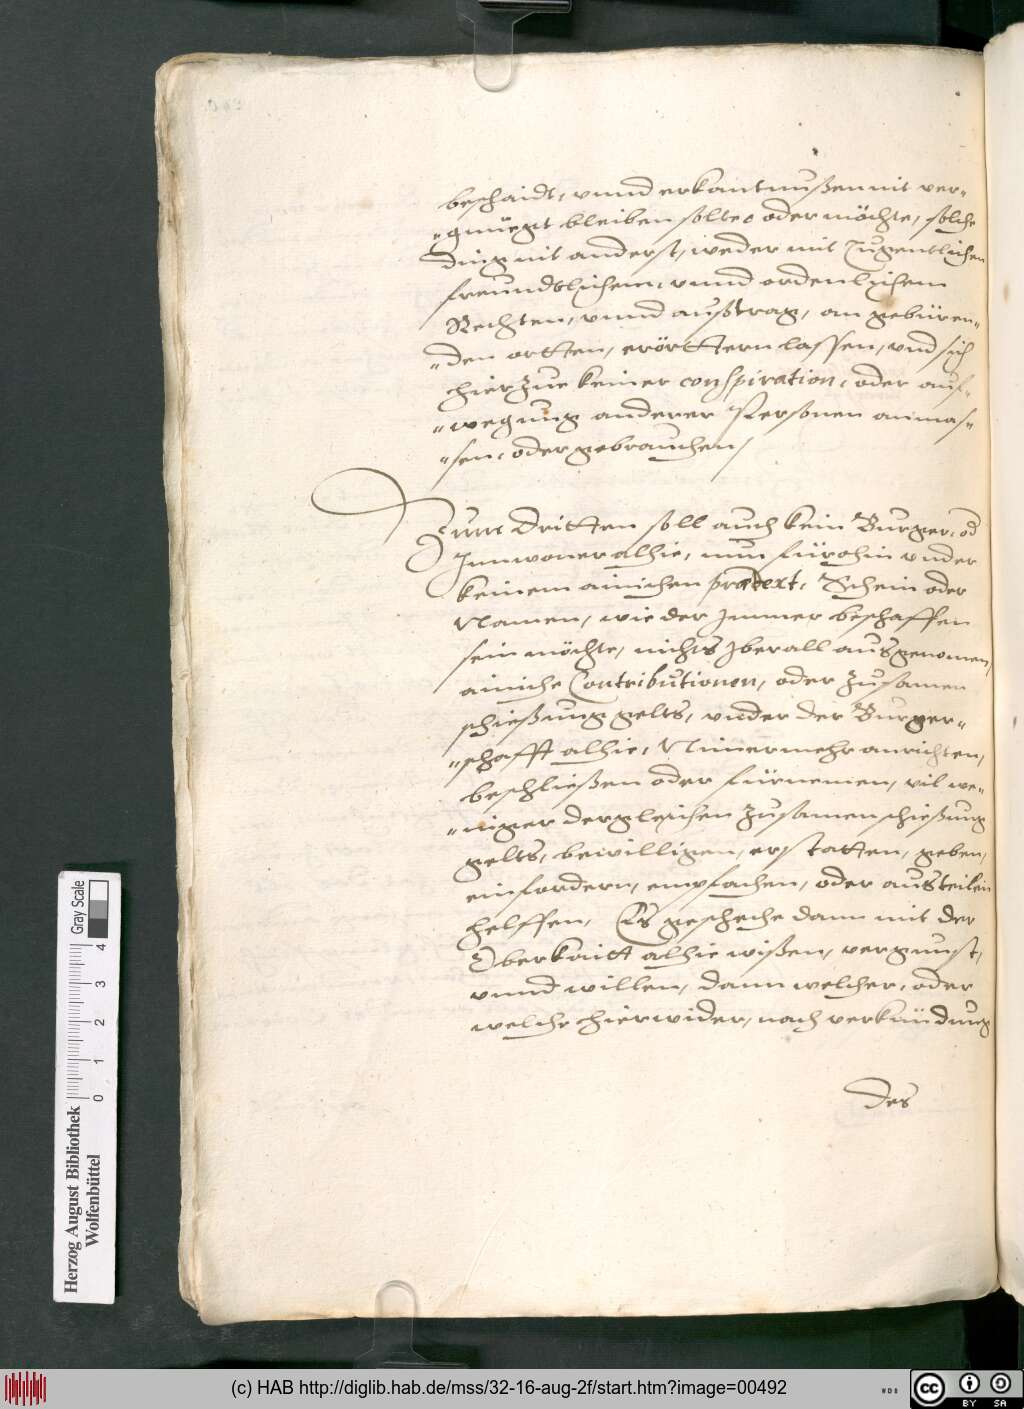 beschaidt, vnnd erkantnußen nit ver-
"gnüegt bleiben solte, oder möchte, solche
ding nit anderst, weder mit Jugentlichen
freundtlichem, vnnd ordenlichem
Rechten, vnnd außtrag, an gebüren-
"den ortten, erörttern lassen, vnd sich
hierzue keiner conspiration, oder auf-
"wegung anderer Personen anmas-
"sen, oder gebrauchen,
Zum Dritten soll auch kein Burger, od
Innwoner alhie, nun fürohin vnder
keinem ainichen prætext, Schein oder
Namen, wie der Immer beschaffen
sein möchte, nichts Iberall ausgenomen,
ainiche Contributionen, oder zusamen
schießung gelts, vnder der Burger-
"schafft alhie, Nimermehr anrichten,
beschließen oder fürnemen, vil we-
"niger dergleichen zusamenschießung
gelts, bewilligen, erstatten, geben,
einfordern, empfachen, oder austeilen
helffen, Es geschehe dann mit der
Oberkaitt alhie wißen, vergunst,
vnnd willen, dann welcher, oder
welche hierwider, nach verkündung
des
Herzog August Bibliothek
Wolfenbüttel
0 1 2 3 4
Gray Scale
(c) HAB http://diglib.hab.de/mss/32-16-aug-2f/start.htm?image=00492
WDB
cc BY SA